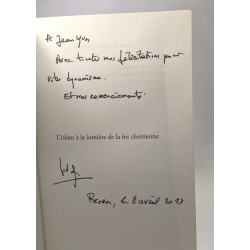 A Jean Yves
Avec toutes mes félicitations pour
votre dynamisme.
Et mes remerciements.
L'islam à la lumière de la foi chrétienne
le 8 avril